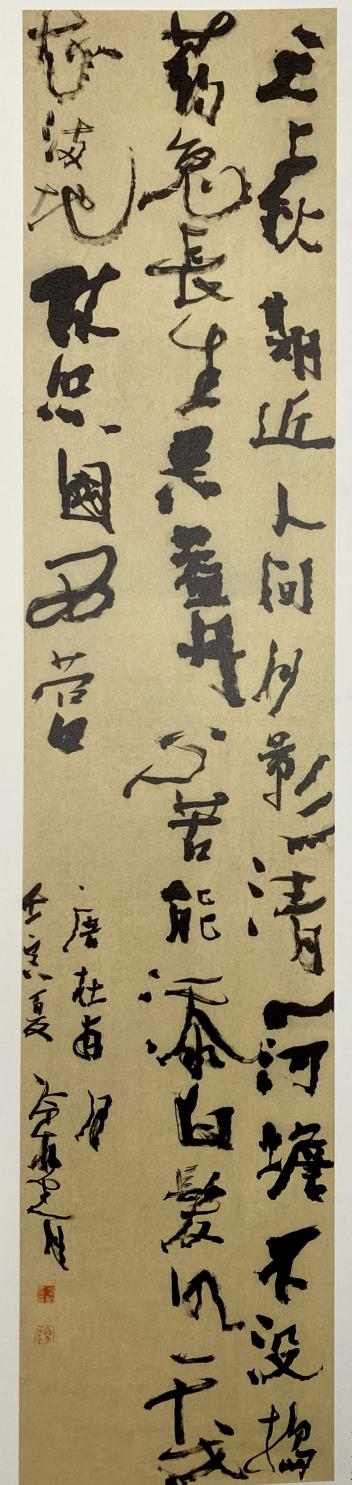 天上秋期近人間月影清入河蟾不没搗
葯兔長生只益丹心苦能添白髮明干戈
知滿地休照國西營
唐杜甫月
壬寅夏